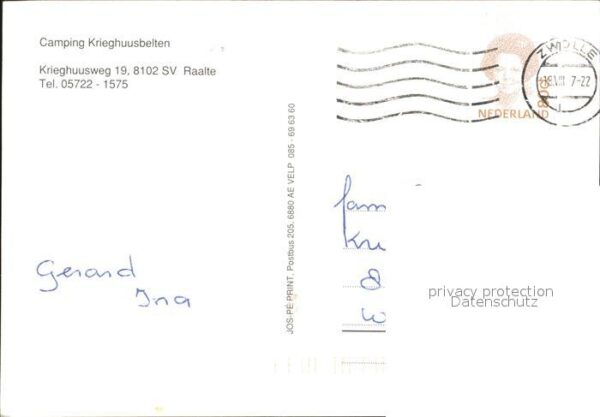 Camping Krieghuusbelten
Krieghuusweg 19, 8102 SV Raalte
Tel. 05722 - 1575
Gerard
Ina
JOS-PÉ PRINT, Postbus 205, 6880 AE VELP 085 - 69 63 60
ZWOLLE
7-22
80c
NEDERLAND
fam
Kru
8
W
privacy protection
Datenschutz